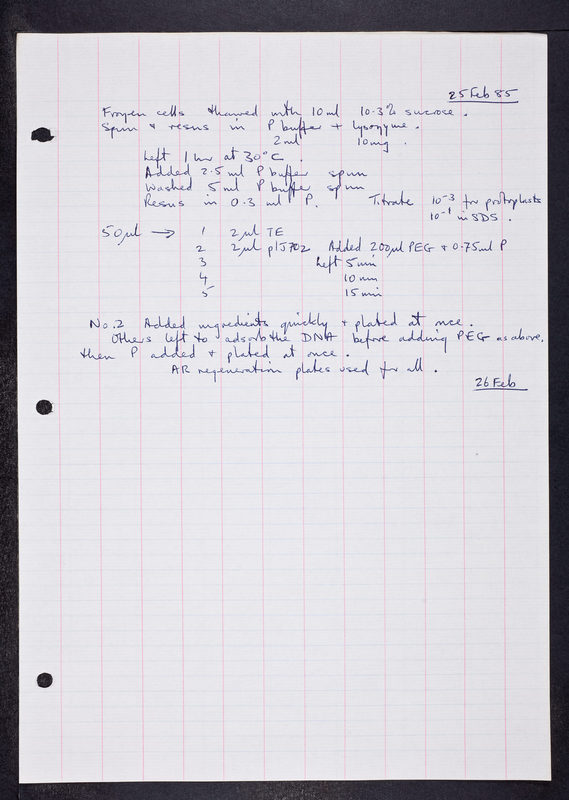 25 Feb 85
Frozen cells thawed with 10 ml 10.3% sucrose.
Spun & resus in P buffer + lysozyme.
2 ml 10 mg.
Left 1 hr at 30°C.
Added 2.5 ml P buffer spun
Washed 5 ml P buffer spun
Resus in 0.3 ml P. Titrate 10⁻³ for protoplasts
10⁻¹ in SDS.
50 µl → 1 2 µl TE
2 2 µl pIJ702 Added 200 µl PEG + 0.75 ml P
3 Left 5 min
4 10 min
5 15 min
No. 2 Added ingredients quickly & plated at once.
Others left to adsorb the DNA before adding PEG as above,
then P added & plated at once.
AR regeneration plates used for all.
26 Feb